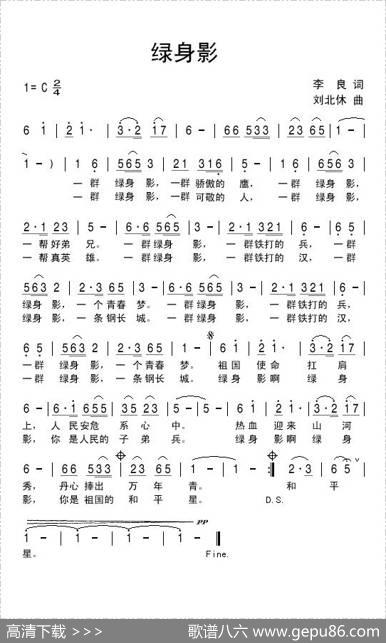 绿身影
1=C 2/4
李 良 词
刘北休 曲
6 i | 2 i· | 3·2 i7 | 6 - | 6 - | 66 533 | 23 235 | 1 - |
1 -) | 1 6 | 565 3 | 21 316 | 5 - | 1 6 | 656 3 |
一群 绿身 影，一群 骄傲的 鹰，一群 绿身 影，
一群 绿身 影，一群 可敬的 人，一群 绿身 影，
2·1 23 | 5 - | 6·6 565 | 3 2 | 2·1 321 | 6 5 |
一帮好弟 兄。一群绿身 影，一群铁打的 兵，一群
一帮真英 雄。一群绿身 影，一群铁打的 汉，一群
563 2 | 2·3 216 | 1 - | 6·6 565 | 3 2 | 2·1 321 |
绿身 影，一个青春 梦。一群绿身 影，一群铁打的 兵，
绿身 影，一条钢长 城。一群绿身 影，一群铁打的 汉，
6 5 | 563 2 | 2·3 216 | 1 - | 6 i | 2 i· | 3·2 i7 |
一群 绿身 影，一个青春 梦。祖国 使命 扛 肩
一群 绿身 影，一条钢长 城。绿身 影啊 绿 身
6 - | 6·i 655 | 35 235 | 2 - | 6 i | 2 i· | 3·2 i7 |
上，人 民安危 系 心 中。 热血 迎来 山 河
影，你 是人民的 子 弟 兵。 绿身 影啊 绿 身
6 - | 66 533 | 23 65 | 1 - | 1 - :| 2·3 | 6 5 |
秀，丹心 捧出 万 年 青。 和 平
影，你是 祖国的 和 平 星。 D.S.
pp
1 - | 1 - | 1 - | 1 - ‖
星。 Fine.
高清下载 >>>
歌谱八六 www.gepu86.com